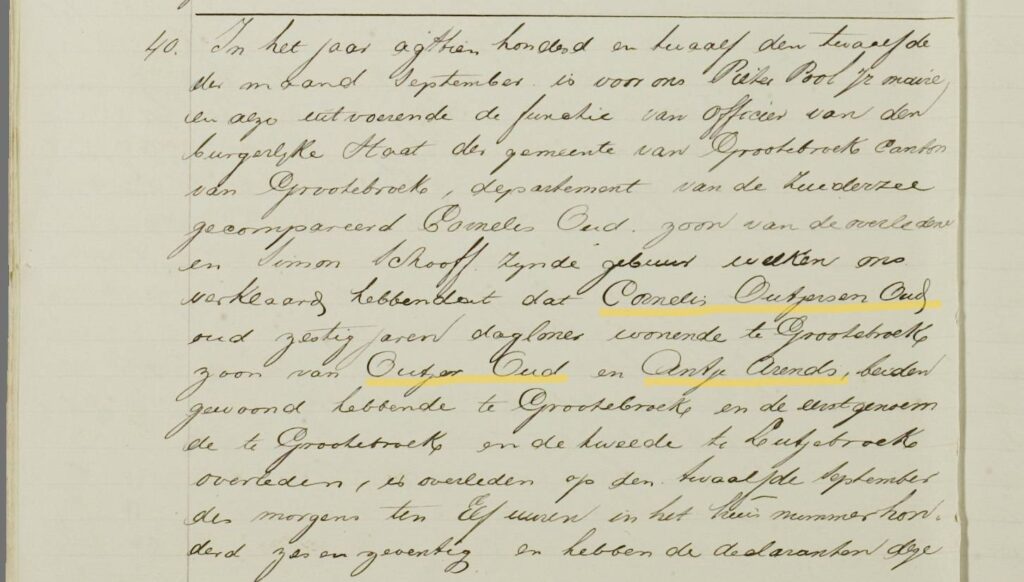 40. In het jaar agttien honderd en twaalf den twaalfde
der maand September is voor ons Pieter Pool Jr maire,
en alzo uitvoerende de functie van officier van den
burgerlyke Staat der gemeente van Grootebroek Canton
van Grootebroek, departement van de Zuiderzee
gecompareerd Cornelis Oud. zoon van de overledene
en Simon Schooff. Zynde gebuur welken ons
verklaard hebben dat Cornelis Outjersen Oud
oud zestig jaren dagloner wonende te Grootebroek
zoon van Outjer Oud en Antje Arends, beiden
gewoond hebbende te Grootebroek en de eerstgenoem
de te Grootebroek en de tweede te Lutjebroek
overleden, is overleden op den twaalfde September
des morgens ten Elf uuren in het huis nummer hon-
derd zes en zeventig en hebben de declaranten deze